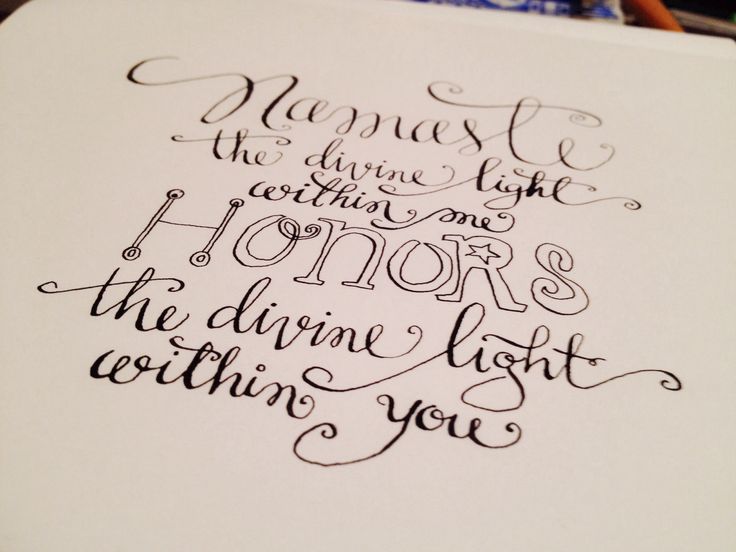 Namaste
the divine light
within me
HONORS
the divine light
within you